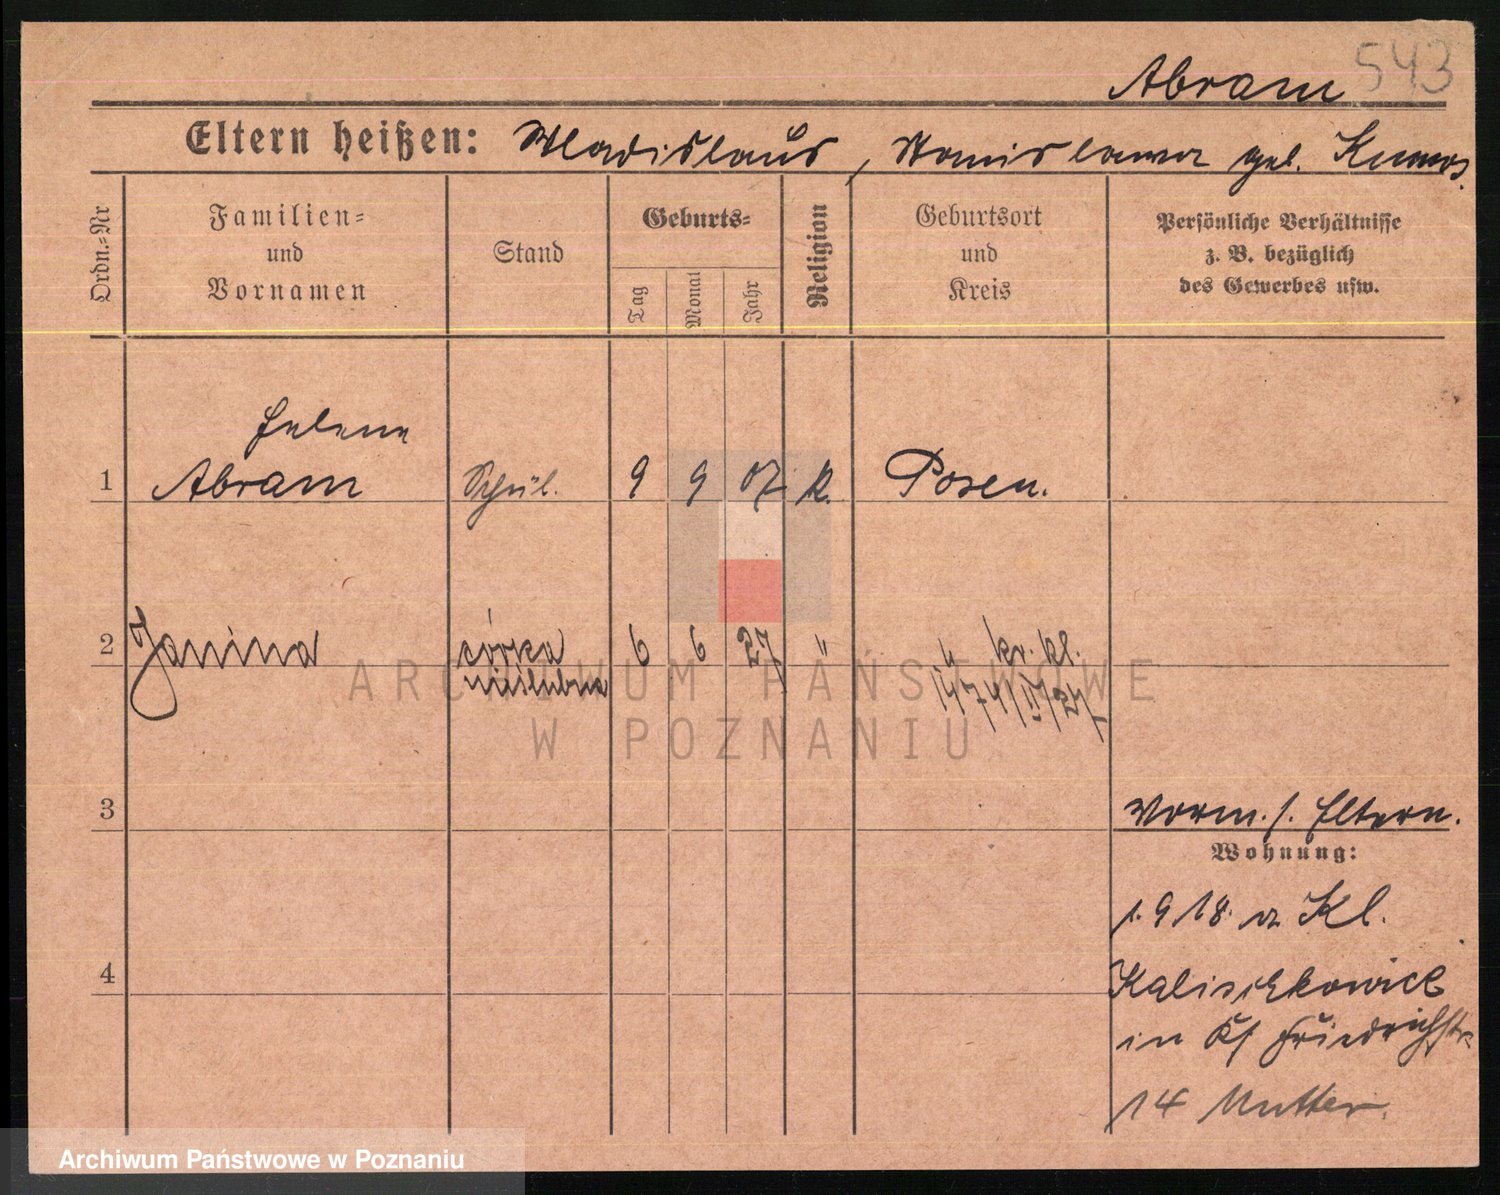 543
Abram
Eltern heißen: Wladislaus, Stanislawa geb.
Ordn.=Nr
Familien=
und
Vornamen
Stand
Geburts=
Tag
Monat
Jahr
Religion
Geburtsort
und
Kreis
Persönliche Verhältnisse
z. B. bezüglich
des Gewerbes usw.
Helene
1 Abram Schül. 9 9 07 k. Posen.
2 Janina córka 6 6 27 " kr. kl.
nieślubna
ARCHIWUM PAŃSTWOWE
W POZNANIU
3 Vorm. s. Eltern.
Wohnung:
1. 9 18. a Kl.
4
in Friedrichstr
14 Mutter.
Archiwum Państwowe w Poznaniu